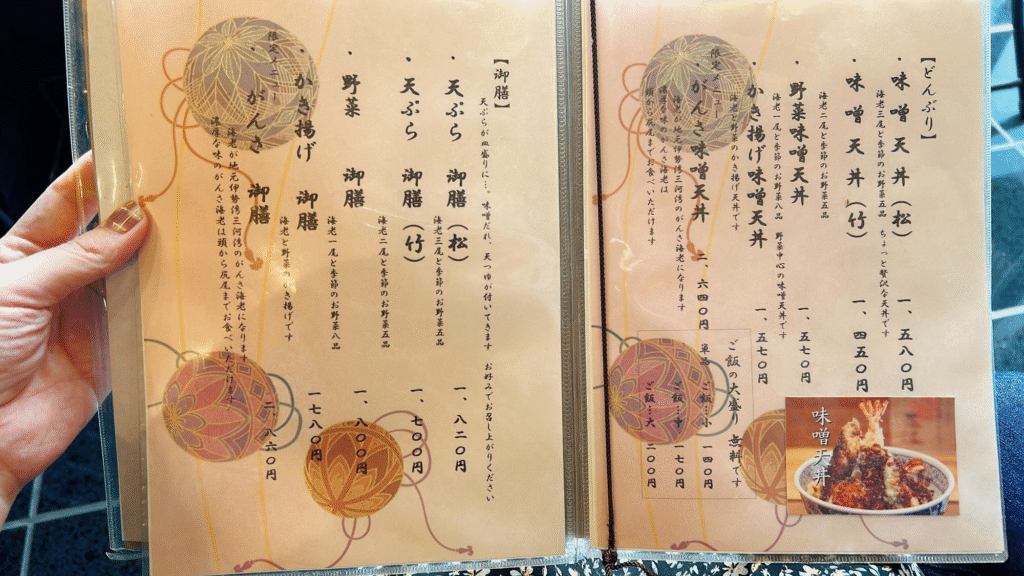 【どんぶり】
・味噌天丼（松） 一、五八〇円
海老三尾と季節のお野菜五品 ちょっと贅沢な天丼です
味噌天丼（竹） 一、四五〇円
海老二尾と季節のお野菜五品
野菜味噌天丼 一、五七〇円
海老一尾と季節のお野菜八品 野菜中心の味噌天丼です
・かき揚げ味噌天丼 一、五七〇円
海老と野菜のかき揚げ天丼です
限定メニュー
・がんさ味噌天丼 二、六四〇円
海老が地元伊勢湾三河湾のがんさ海老になります
濃厚な味のがんさ海老は
頭から尻尾までお食べいただけます
ご飯の大盛り 無料です
単品 ご飯…小 一四〇円
ご飯…中 一七〇円
ご飯…大 二〇〇円
味噌天丼
【御膳】
天ぷらが皿盛りに…。味噌だれ、天つゆが付いてきます お好みでお召し上がりください
・天ぷら 御膳（松） 一、八二〇円
海老三尾と季節のお野菜五品
・天ぷら 御膳（竹） 一、七〇〇円
海老二尾と季節のお野菜五品
・野菜 御膳 一、八〇〇円
海老一尾と季節のお野菜八品
・かき揚げ 御膳 一七八〇円
海老と野菜のかき揚げです
限定メニュー
・がんさ 御膳 二、八六〇円
海老が地元伊勢湾三河湾のがんさ海老になります
濃厚な味のがんさ海老は頭から尻尾までお食べいただけます